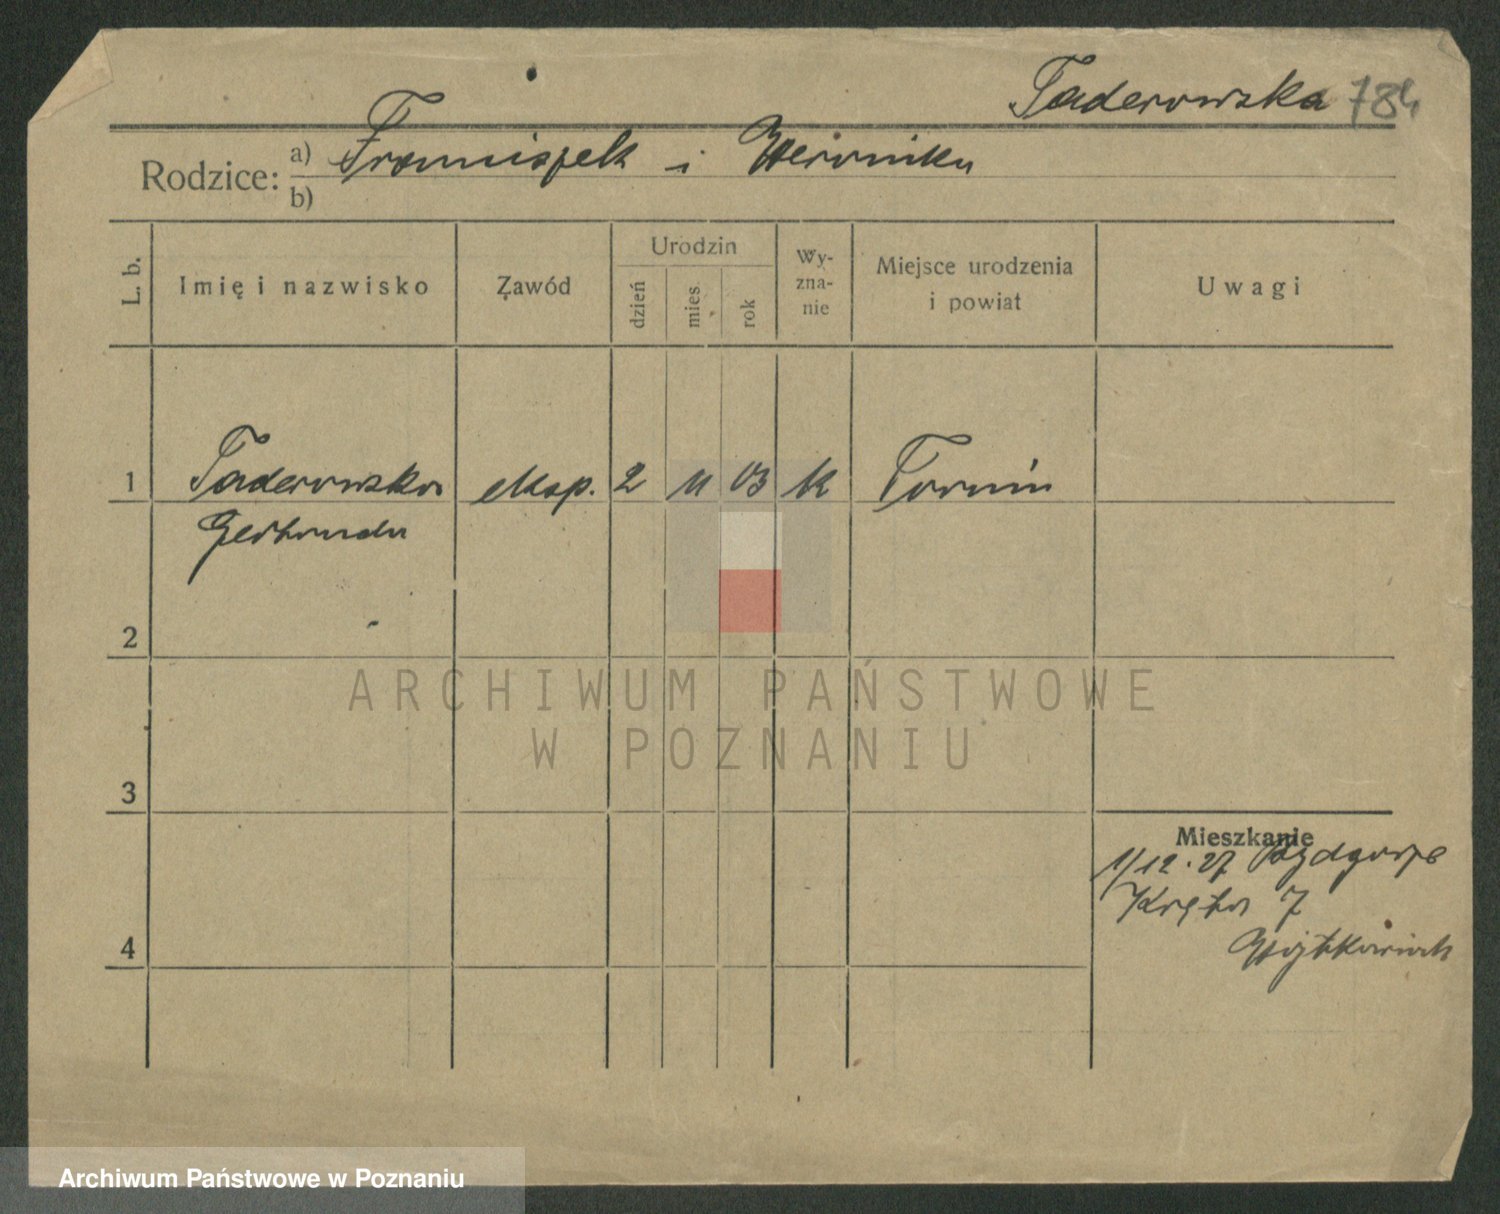 Taderowska 784
Rodzice: a) Franciszek i Weronika
b)
L. b.
Imię i nazwisko
Zawód
Urodzin
dzień
mies.
rok
Wy-
zna-
nie
Miejsce urodzenia
i powiat
Uwagi
1 Taderowska eksp. 2 11 03 k Toruń
Gertruda
2
ARCHIWUM PAŃSTWOWE
W POZNANIU
3
Mieszkanie
1/12.27 Bydgoszcz
Kręta 7
4
Wojtkowiak
Archiwum Państwowe w Poznaniu